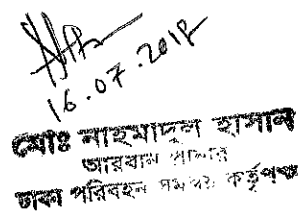 16.07.2018
মোঃ নাহমাদুল হাসান
আরবান প্লানার
ঢাকা পরিবহন সমন্বয় কর্তৃপক্ষ